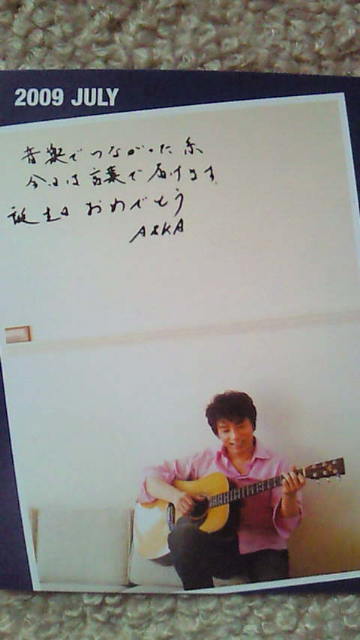 2009 JULY
音楽でつながった糸
今日は言葉で届けます
誕生日 おめでとう
ASKA